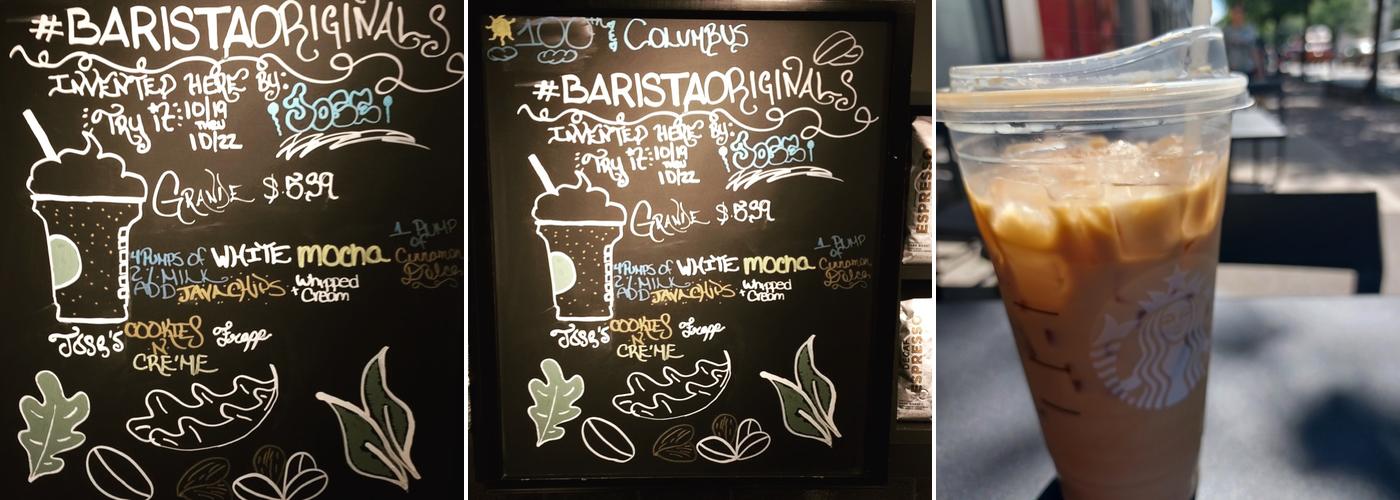 #BARISTAORIGINALS
INVENTED HERE BY:
JOSE!
TRY IT: 10/19
THRU
10/22
GRANDE $5.39
1 PUMP
OF
Cinnamon
Dolce
4 PUMPS OF WHITE mocha
2% MILK
ADD JAVA CHIPS
+ Whipped
Cream
JOSE'S COOKIES
N
CRÉ'ME
Frappe
100th & COLUMBUS
#BARISTAORIGINALS
INVENTED HERE BY:
JOSE!
TRY IT: 10/19
THRU
10/22
GRANDE $5.39
1 PUMP
OF
Cinnamon
Dolce
4 PUMPS OF WHITE mocha
2% MILK
ADD JAVA CHIPS
+ Whipped
Cream
JOSE'S COOKIES
N
CRÉ'ME
Frappe
ESPRESSO
ESPRESSO